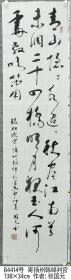 青山隐隐水迢迢秋尽江南草
未凋二十四桥明月夜玉人何
处教吹箫
B4414号 寄扬州韩绰判官
138×34cm 作者：张国元